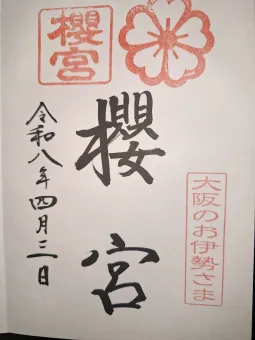 櫻宮
大阪のお伊勢さま
櫻宮
令和八年四月三日